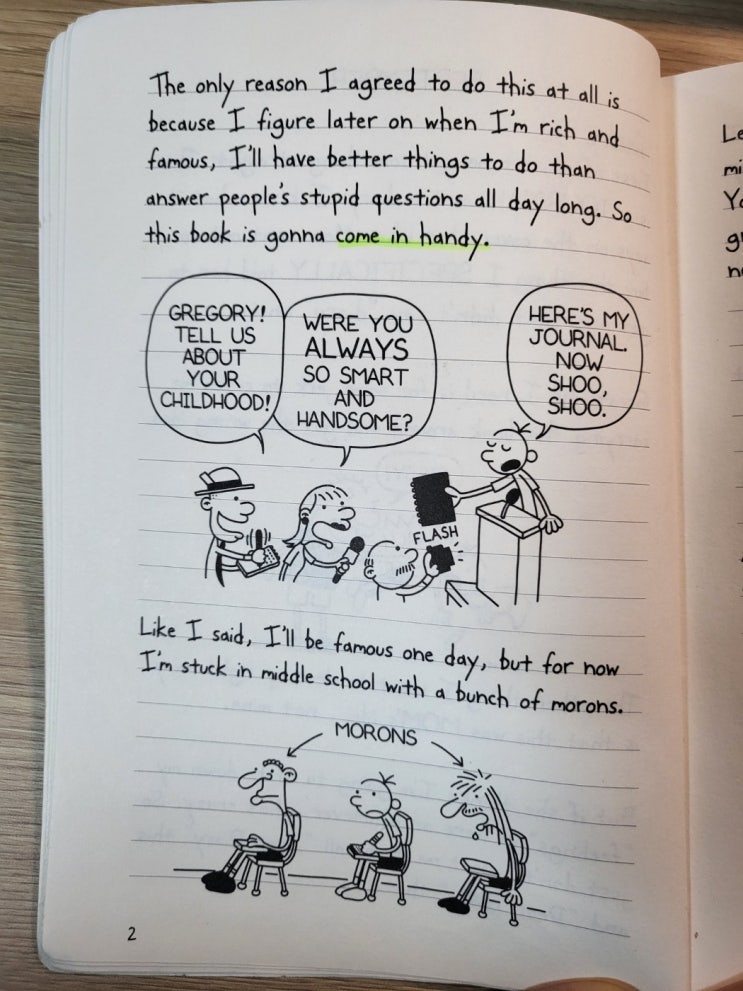 The only reason I agreed to do this at all is
because I figure later on when I'm rich and
famous, I'll have better things to do than
answer people's stupid questions all day long. So
this book is gonna come in handy.
GREGORY!
TELL US
ABOUT
YOUR
CHILDHOOD!
WERE YOU
ALWAYS
SO SMART
AND
HANDSOME?
HERE'S MY
JOURNAL.
NOW
SHOO,
SHOO.
FLASH
Like I said, I'll be famous one day, but for now
I'm stuck in middle school with a bunch of morons.
MORONS
2